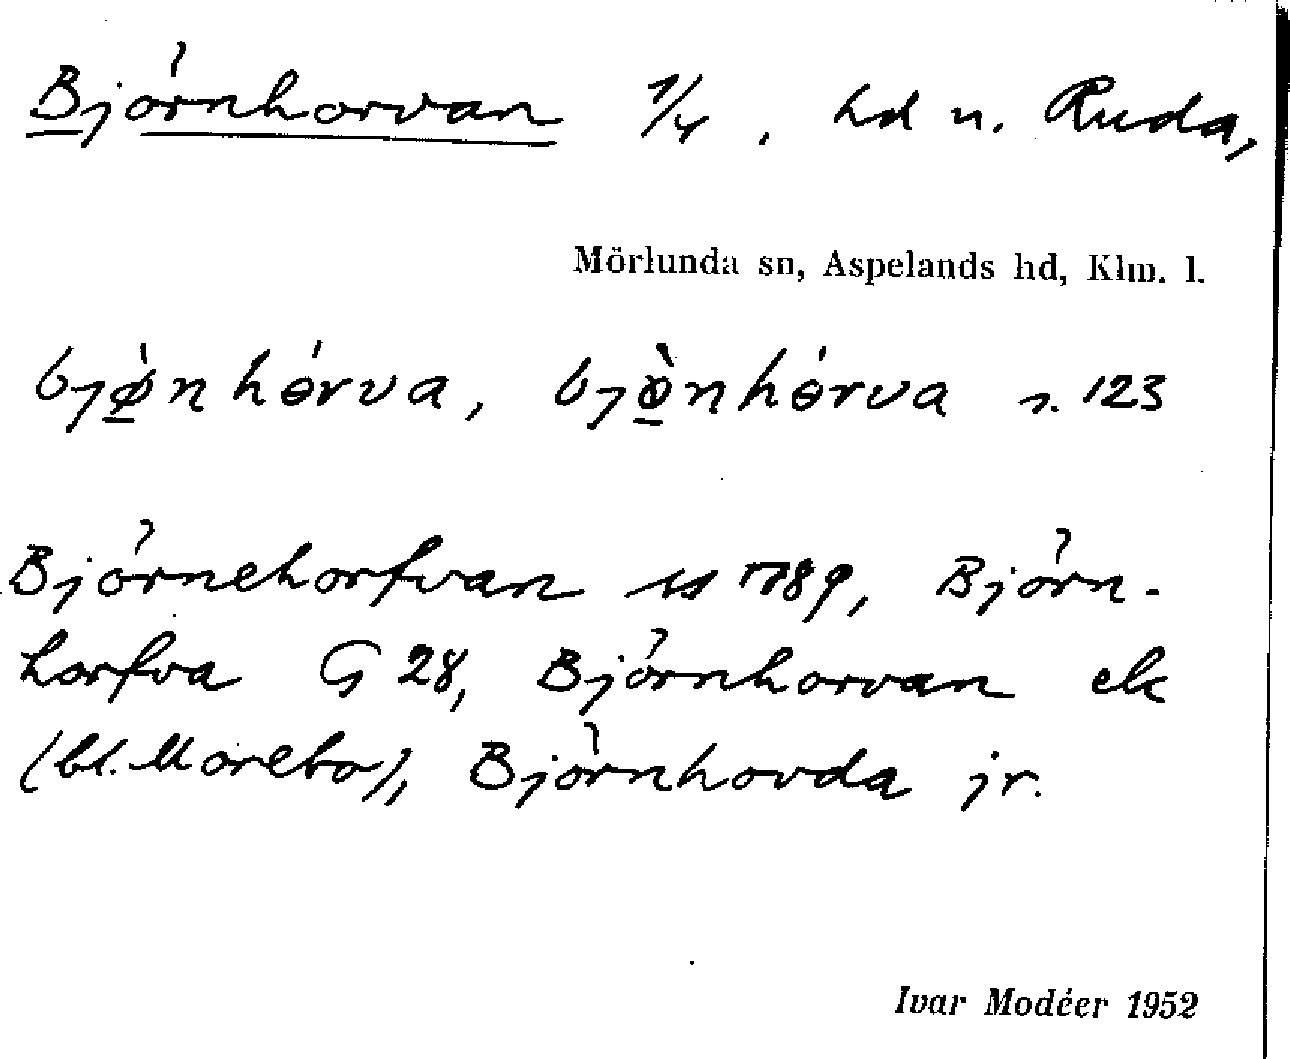 Björnhorvan 1/4, hd u. Ruda,
Mörlunda sn, Aspelands hd, Klm. l.
bjø̀nhɵ́rva, bjɵ̀nhɵ́rva s. 123
Björnehorfvan 1789, Björn-
horfva G 28, Björnhorvan ek
(bl. Morebo), Björnhovda jr.
Ivar Modéer 1952